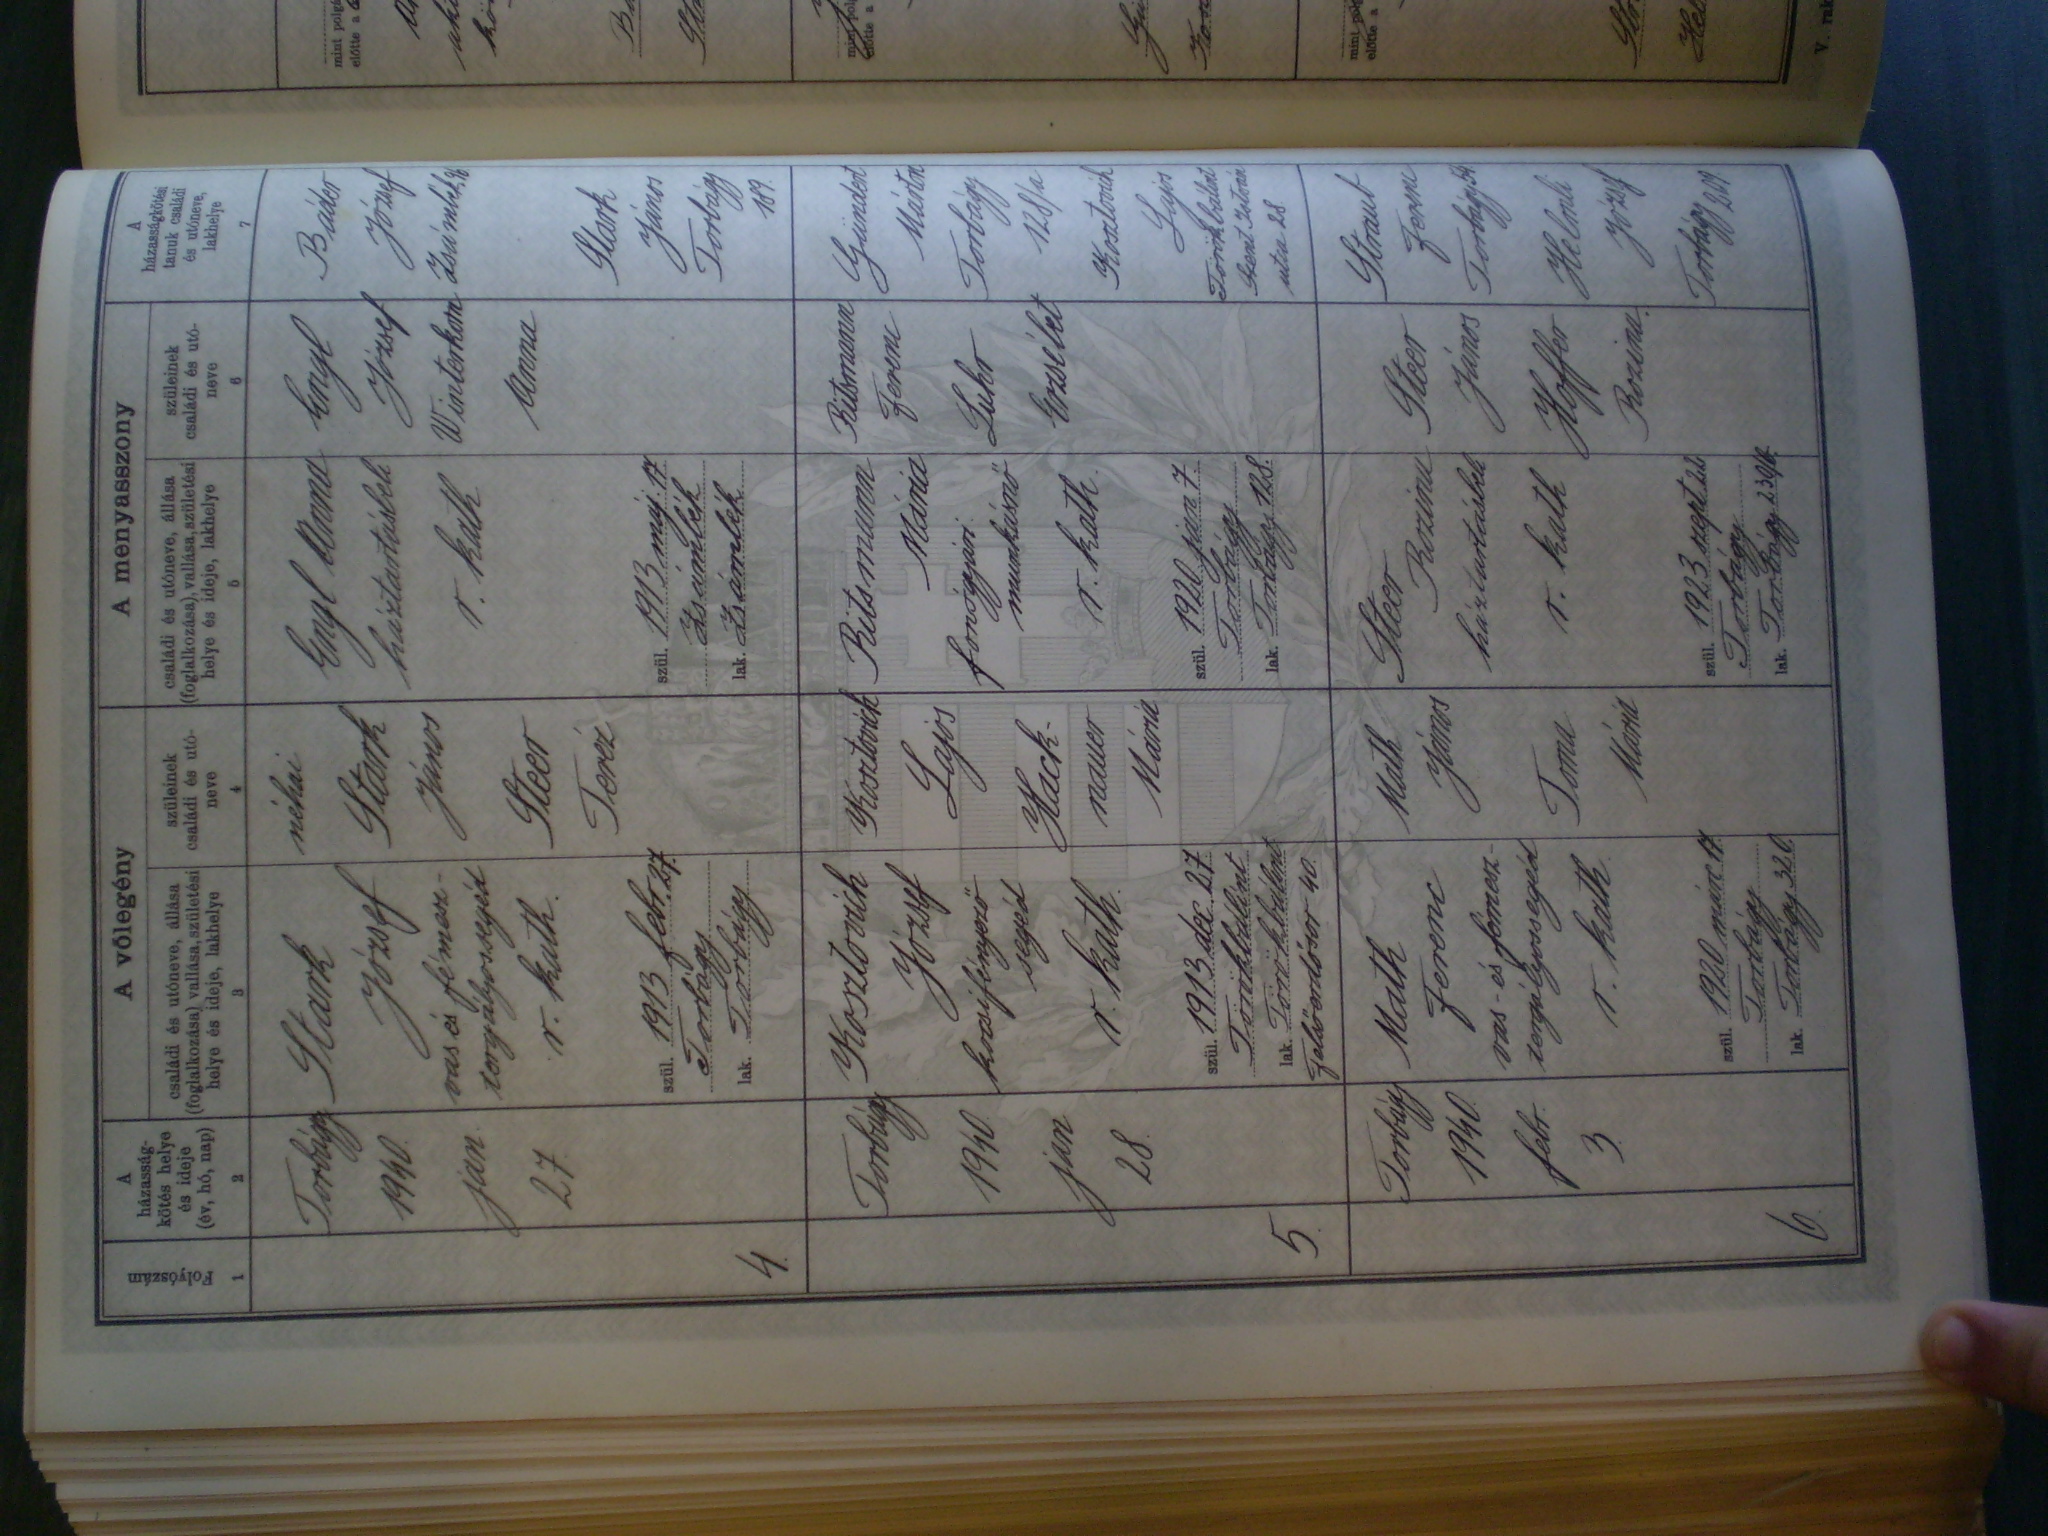 A vőlegény
A menyasszony
Folyószám
A
házasság-
kötés helye
és ideje
(év, hó, nap)
családi és utóneve, állása
(foglalkozása) vallása, születési
helye és ideje, lakhelye
szüleinek
családi és utó-
neve
családi és utóneve, állása
(foglalkozása), vallása, születési
helye és ideje, lakhelye
szüleinek
családi és utó-
neve
A
házasságkötési
tanuk családi
és utóneve,
lakhelye
1
2
3
4
5
6
7
4.
Torbágy
1940.
jan.
27.
Stark
József
vas és fémesz-
tergályossegéd
r. kath.
szül. 1913 febr. 27.
Torbágy
lak. Torbágy
néhai
Stark
János
Steer
Teréz
Engl Anna
háztartásbeli
r. kath
szül. 1913 máj. 17
Zsámbék
lak. Zsámbék
Engl
József
Winterkorn
Anna
József
Zsámbék
Stark
János
Torbágy
169.
5.
Torbágy
1940.
jan
28.
Kosztovich
József
kocsifényező
segéd
r. kath.
szül. 1913 dec. 27.
Törökbálint
lak. Törökbálint
Felsőerdősor 40.
Kosztovich
Lajos
Hack-
nauer
Mária
Ritsmann
Mária
fonógyári
munkásnő
r. kath.
szül. 1920 jan 7.
Torbágy
lak. Torbágy 128.
Ritsmann
Ferenc
Luhr
Erzsébet
Gündert
Márton
Torbágy
128/a
Kosztovich
Lajos
Törökbálint
Szent István
utca 28.
6.
Torbágy
1940.
febr.
3.
Math
Ferenc
vas- és fémesz-
tergályossegéd
r. kath.
szül. 1920 márc 17.
Torbágy
lak. Torbágy 320
Math
János
Toma
Mária
Steer
Rozina
háztartásbeli
r. kath
szül. 1923 szept.
Torbágy
lak. Torbágy
Steer
János
Hoffer
Rozina
Straub
Ferenc
Torbágy
József
Torbágy
mint polgá
előtte a
mint polg
előtte a
mint polg
előtte a
V. rak